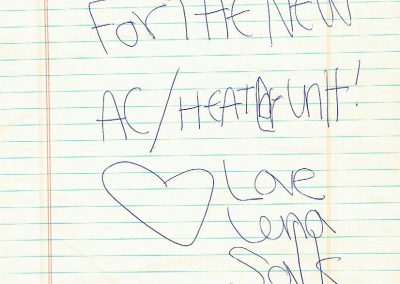 FOR THE NEW
AC/HEATER UNIT!
Love
Lena